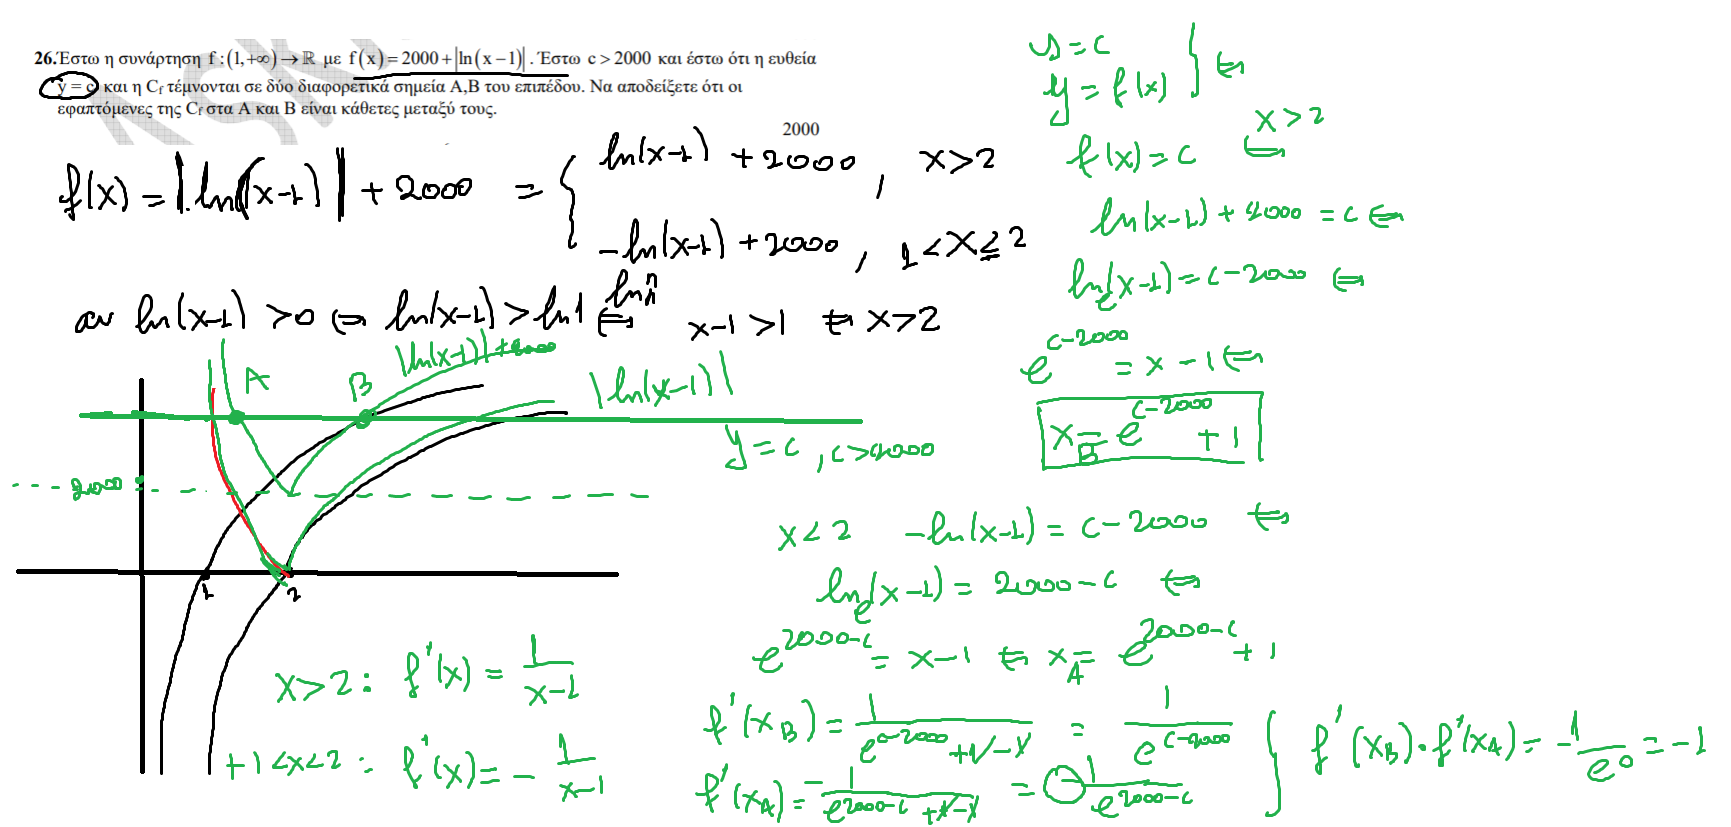 26.Έστω η συνάρτηση f :(1,+∞)→ℝ με f(x)=2000+|ln(x−1)| . Έστω c > 2000 και έστω ότι η ευθεία
y = c και η Cf τέμνονται σε δύο διαφορετικά σημεία Α,Β του επιπέδου. Να αποδείξετε ότι οι
εφαπτόμενες της Cf στα Α και Β είναι κάθετες μεταξύ τους.
2000
f(x) = |ln(x-1)| + 2000 = { ln(x-1) + 2000 , x>2
-ln(x-1) + 2000 , 1<x≤2
αν ln(x-1) >0 ⇔ ln(x-1) > ln1 ⇔ x-1 >1 ⇔ x>2
|ln(x-1)|+2000
A
B
|ln(x-1)|
y = c , c>2000
2000
1
2
x>2 : f'(x) = 1/(x-1)
+1<x<2 : f'(x) = - 1/(x-1)
y = c
y = f(x) } ⇔
f(x) = c ⇔ x>2
ln(x-1) + 2000 = c ⇔
ln(x-1) = c-2000 ⇔
e^(c-2000) = x-1 ⇔
x_B = e^(c-2000) + 1
x<2 -ln(x-1) = c-2000 ⇔
ln_e(x-1) = 2000-c ⇔
e^(2000-c) = x-1 ⇔ x_A = e^(2000-c) + 1
f'(x_B) = 1/(e^(c-2000)+1-1) = 1/e^(c-2000)
f'(x_A) = -1/(e^(2000-c)+1-1) = -1/e^(2000-c)
} f'(x_B)·f'(x_A) = -1/e^0 = -1